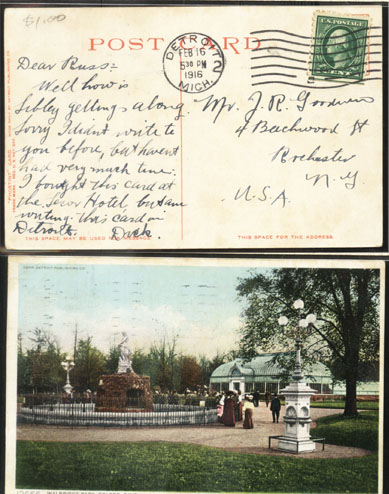 $1.00
POST CARD
DETROIT
FEB 16
5 30 PM
1916
MICH.
2
U.S. POSTAGE
Dear Russ:-
Well how is
Sibley getting along.
Sorry I didn't write to
you before, but haven't
had very much time.
I bought this card at
the Hotel but am
writing this card in
Detroit. Dick.
Mr. J. R. Goodwin
4 Beachwood St
Rochester
N. Y.
U.S.A.
THIS SPACE MAY BE USED FOR MESSAGE
THIS SPACE FOR THE ADDRESS